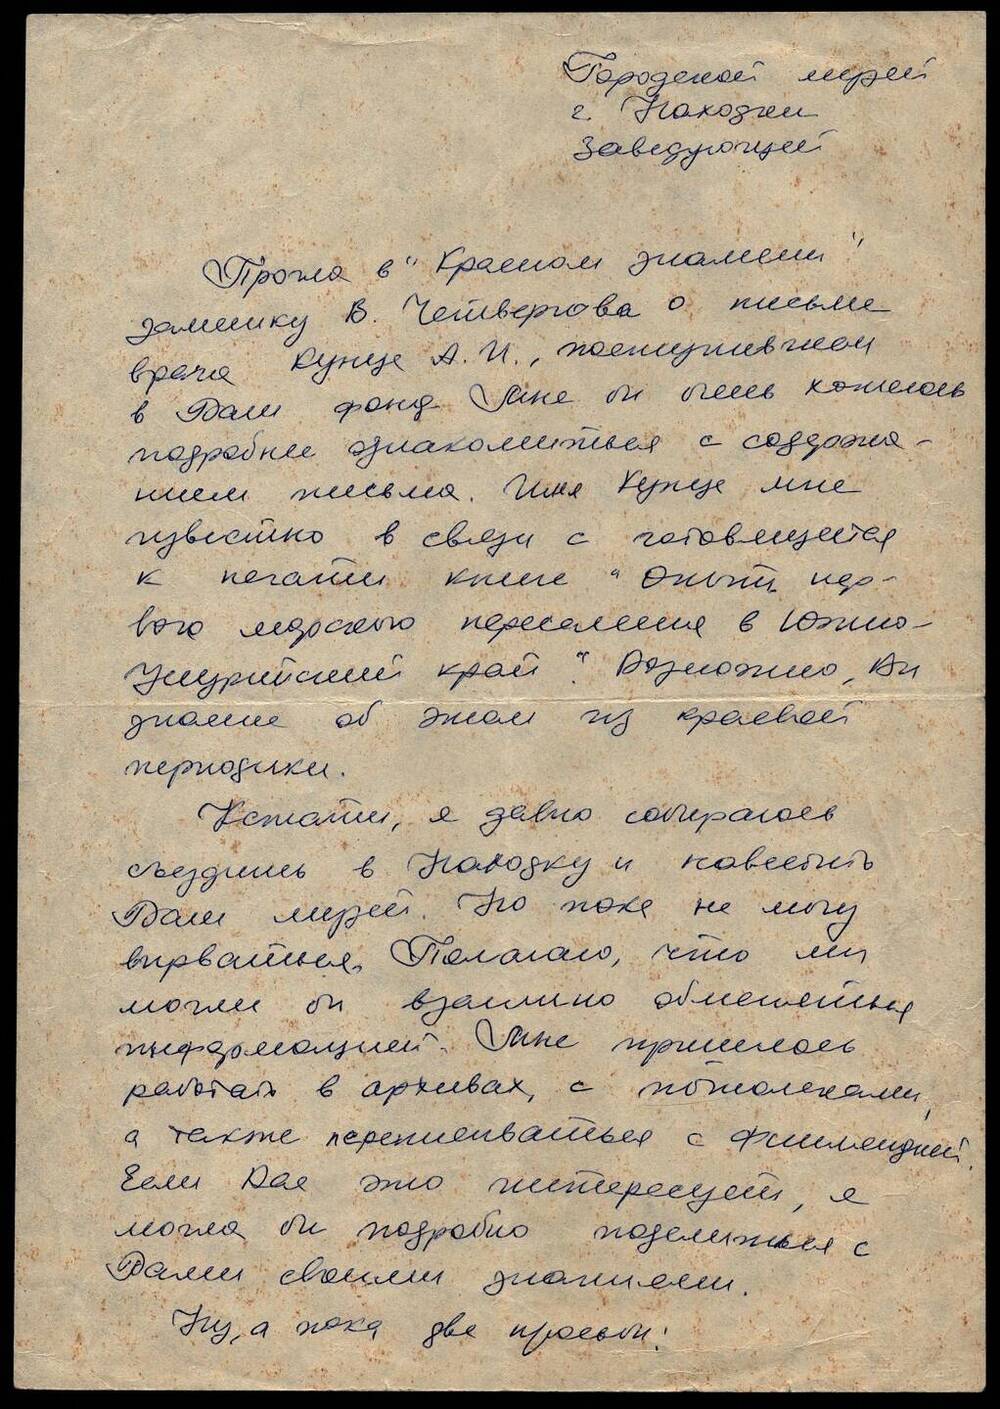 Городской музей
г. Находки
Заведующей
Прочла в "Красном знамени"
заметку В. Четвергова о письме
врача Кунце А. И., поступившем
в Ваш фонд. Мне бы очень хотелось
подробнее ознакомиться с содержа-
нием письма. Имя Кунце мне
известно в связи с готовящейся
к печати книге "Опыт пер-
вого морского переселения в Южно-
Уссурийский край". Возможно, Вы
знаете об этом из краевой
периодики.
Кстати, я давно собираюсь
съездить в Находку и навестить
Ваш музей. Но пока не могу
вырваться. Полагаю, что мы
могли бы взаимно обменяться
информацией. Мне пришлось
работать в архивах, с потомками,
а также переписываться с Финляндией.
Если Вас это интересует, я
могла бы подробно поделиться с
Вами своими знаниями.
Ну, а пока две просьбы: